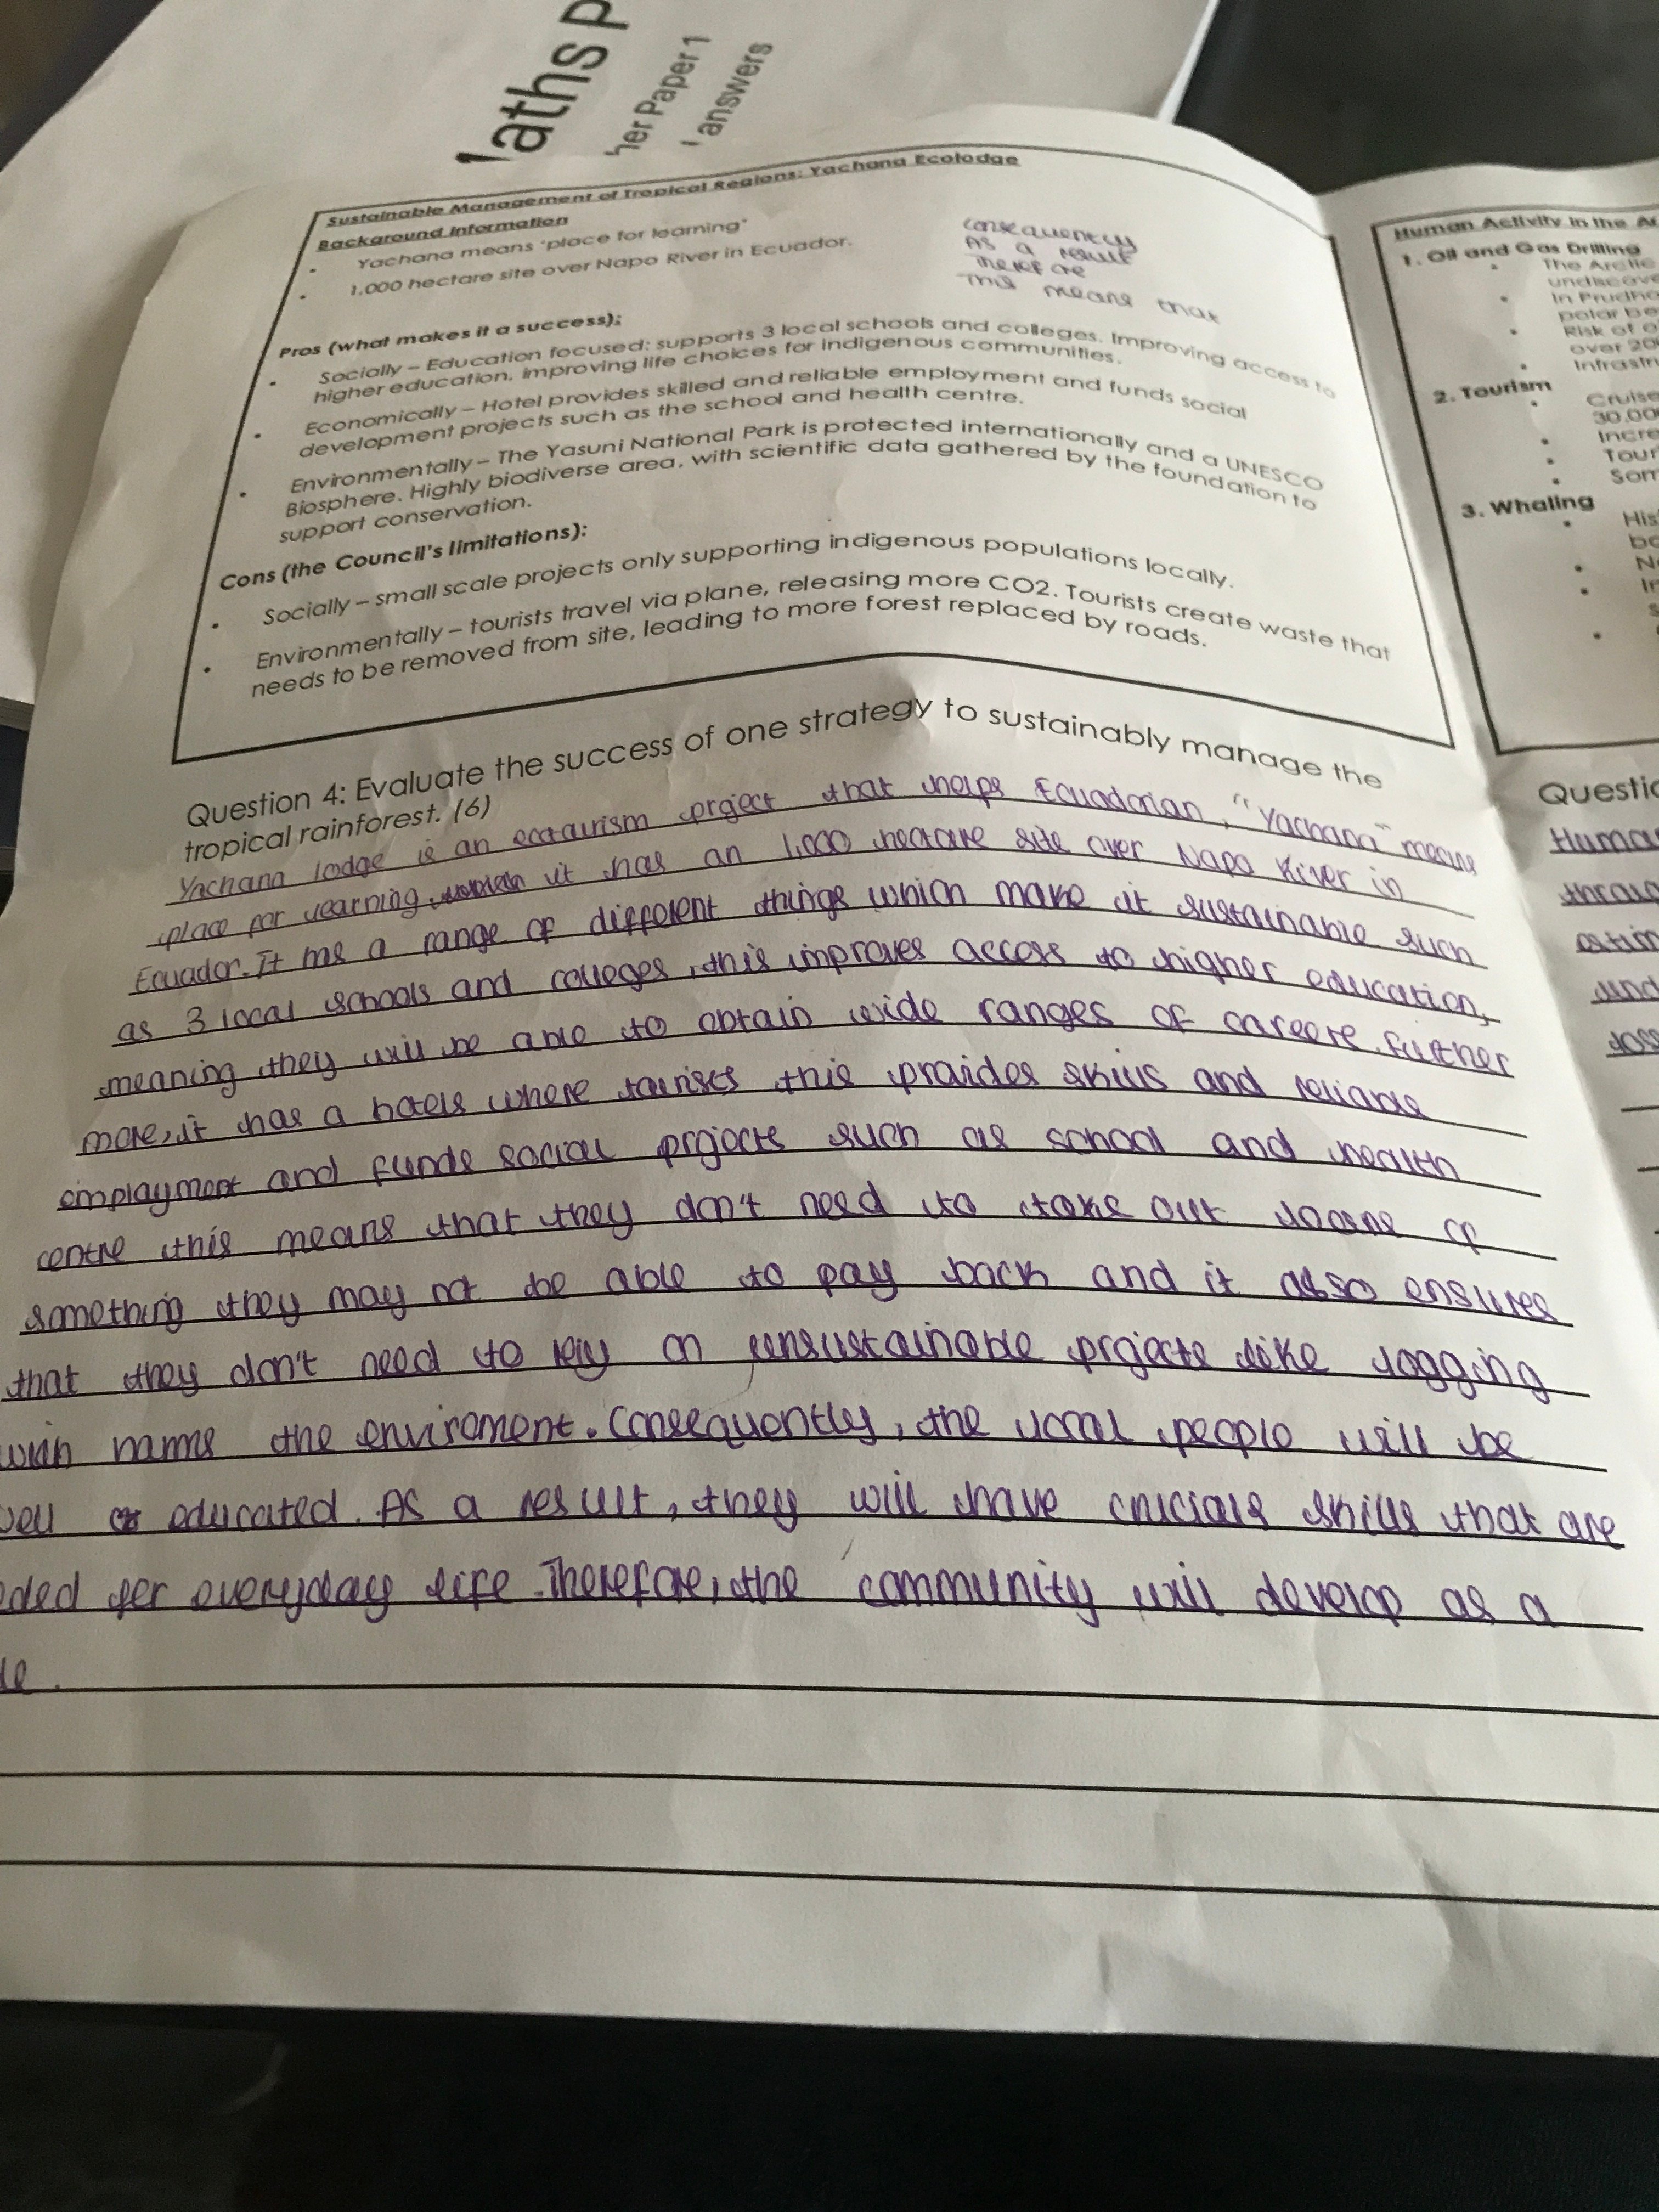 aths P
er Paper 1
answers
Sustainable Management of Tropical Regions: Yachana Ecolodge
Background Information
• Yachana means 'place for learning'
• 1,000 hectare site over Napo River in Ecuador.
consequently
As a result
Therefore
This means that
Pros (what makes it a success):
• Socially – Education focused: supports 3 local schools and colleges. Improving access to
higher education, improving life choices for indigenous communities.
• Economically – Hotel provides skilled and reliable employment and funds social
development projects such as the school and health centre.
• Environmentally – The Yasuni National Park is protected internationally and a UNESCO
Biosphere. Highly biodiverse area, with scientific data gathered by the foundation to
support conservation.
Cons (the Council's limitations):
• Socially – small scale projects only supporting indigenous populations locally.
• Environmentally – tourists travel via plane, releasing more CO2. Tourists create waste that
needs to be removed from site, leading to more forest replaced by roads.
Question 4: Evaluate the success of one strategy to sustainably manage the
tropical rainforest. (6)
Yachana lodge is an ecotourism project that helps Ecuadorian, "Yachana" means
place for learning it has an 1,000 hectare site over Napo River in
Ecuador. It has a range of different things which make it sustainable such
as 3 local schools and colleges, this improves access to higher education,
meaning they will be able to obtain wide ranges of careers. Further
more, it has a hotels where tourists this provides skills and reliable
employment and funds social projects such as school and health
centre this means that they don't need to take out loans or
something they may not be able to pay back and it also ensures
that they don't need to rely on unsustainable projects like logging
harms the enviroment. Consequently, the local people will be
well educated. As a result, they will have crucials skills that are
eded for everyday life. Therefore, the community will develop as a
le.
Human Activity in the A
1. Oil and Gas Drilling
• The Arctic
undiscove
• In Prudho
polar be
• Risk of o
over 20
• Infrastr
2. Tourism
• Cruise
30,00
• Incre
• Tour
• Som
3. Whaling
• His
bo
• N
• In
s
Questio
Huma
throug